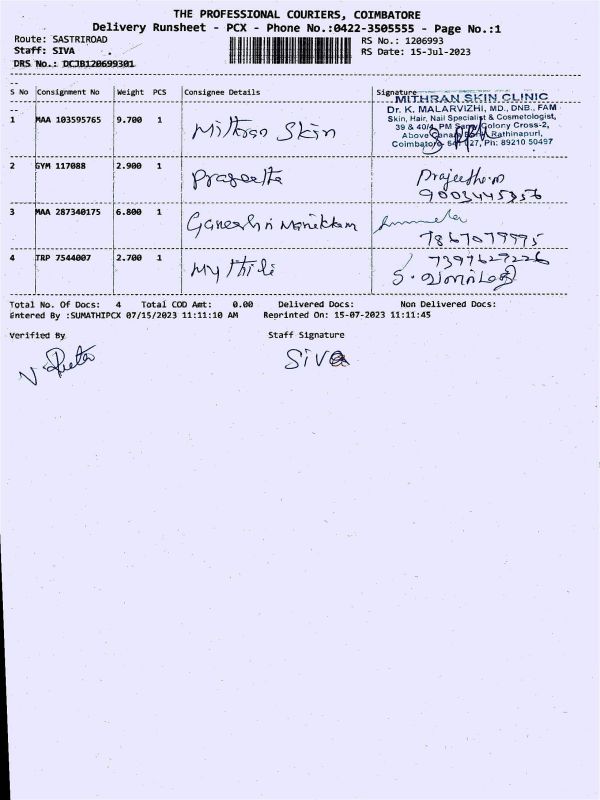 THE PROFESSIONAL COURIERS, COIMBATORE
Delivery Runsheet - PCX - Phone No.:0422-3505555 - Page No.:1
Route: SASTRIROAD
RS No.: 1206993
Staff: SIVA
RS Date: 15-Jul-2023
DRS No.: DCJB120699301
S No Consignment No Weight PCS Consignee Details Signature
MITHRAN SKIN CLINIC
Dr. K. MALARVIZHI, MD., DNB., FAM
Skin, Hair, Nail Specialist & Cosmetologist,
39 & 40/4, PM Samy Colony Cross-2,
Above Bank, Rathinapuri,
Coimbatore- 641 027, Ph: 89210 50497
1 MAA 103595765 9.700 1 Mithran Skin
2 GYM 117088 2.900 1 Prajeetha Prajeetha
3 MAA 287340175 6.800 1 Ganeshri Manikkam
7867079995
4 TRP 7544007 2.700 1 Mythili 7397629226
Total No. Of Docs: 4 Total COD Amt: 0.00 Delivered Docs: Non Delivered Docs:
Entered By :SUMATHIPCX 07/15/2023 11:11:10 AM Reprinted On: 15-07-2023 11:11:45
Verified By Staff Signature
Siva